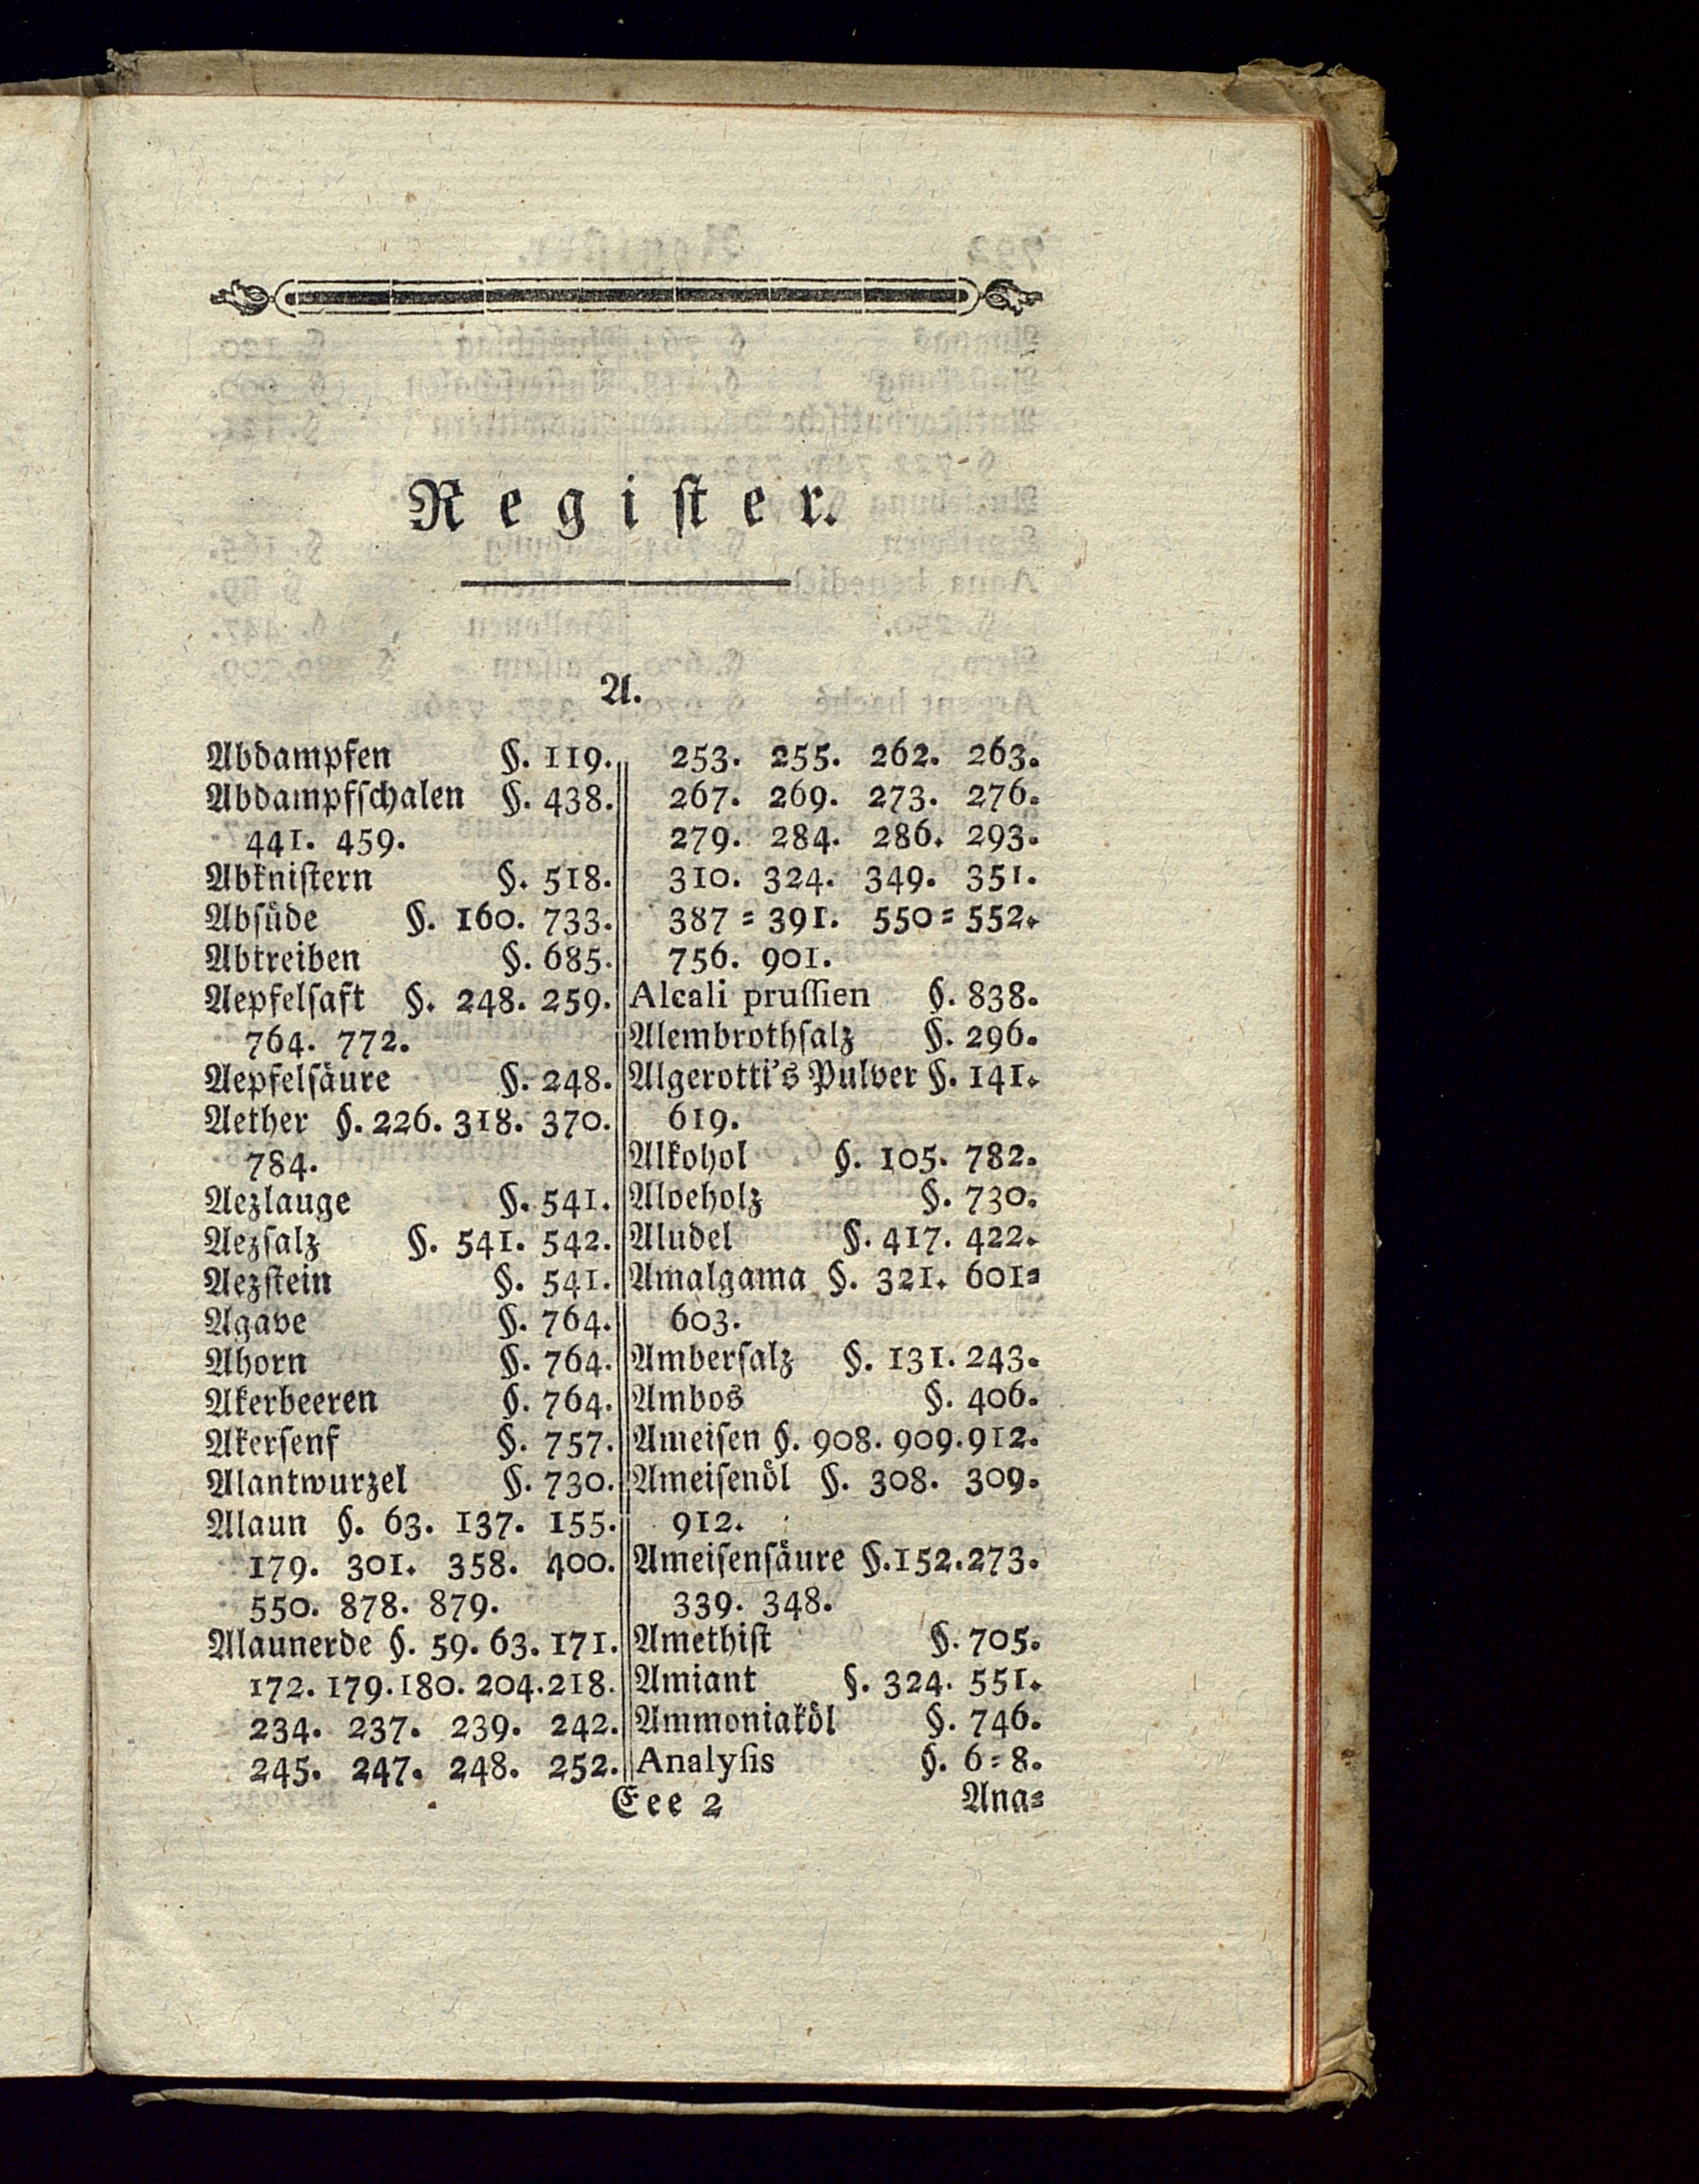 Regiſter.
A.
Abdampfen §. 119.
Abdampfſchalen §. 438.
441. 459.
Abkniſtern §. 518.
Abſüde §. 160. 733.
Abtreiben §. 685.
Aepfelſaft §. 248. 259.
764. 772.
Aepfelſäure §. 248.
Aether §. 226. 318. 370.
784.
Aezlauge §. 541.
Aezſalz §. 541. 542.
Aezſtein §. 541.
Agave §. 764.
Ahorn §. 764.
Akerbeeren §. 764.
Akerſenf §. 757.
Alantwurzel §. 730.
Alaun §. 63. 137. 155.
179. 301. 358. 400.
550. 878. 879.
Alaunerde §. 59. 63. 171.
172. 179. 180. 204. 218.
234. 237. 239. 242.
245. 247. 248. 252.
253. 255. 262. 263.
267. 269. 273. 276.
279. 284. 286. 293.
310. 324. 349. 351.
387 = 391. 550 = 552.
756. 901.
Alcali pruſſien §. 838.
Alembrothſalz §. 296.
Algerotti's Pulver §. 141.
619.
Alkohol §. 105. 782.
Aloeholz §. 730.
Aludel §. 417. 422.
Amalgama §. 321. 601=
603.
Amberſalz §. 131. 243.
Ambos §. 406.
Ameiſen §. 908. 909. 912.
Ameiſenöl §. 308. 309.
912.
Ameiſenſäure §. 152. 273.
339. 348.
Amethiſt §. 705.
Amiant §. 324. 551.
Ammoniaköl §. 746.
Analyſis §. 6 = 8.
Eee 2 Ana=